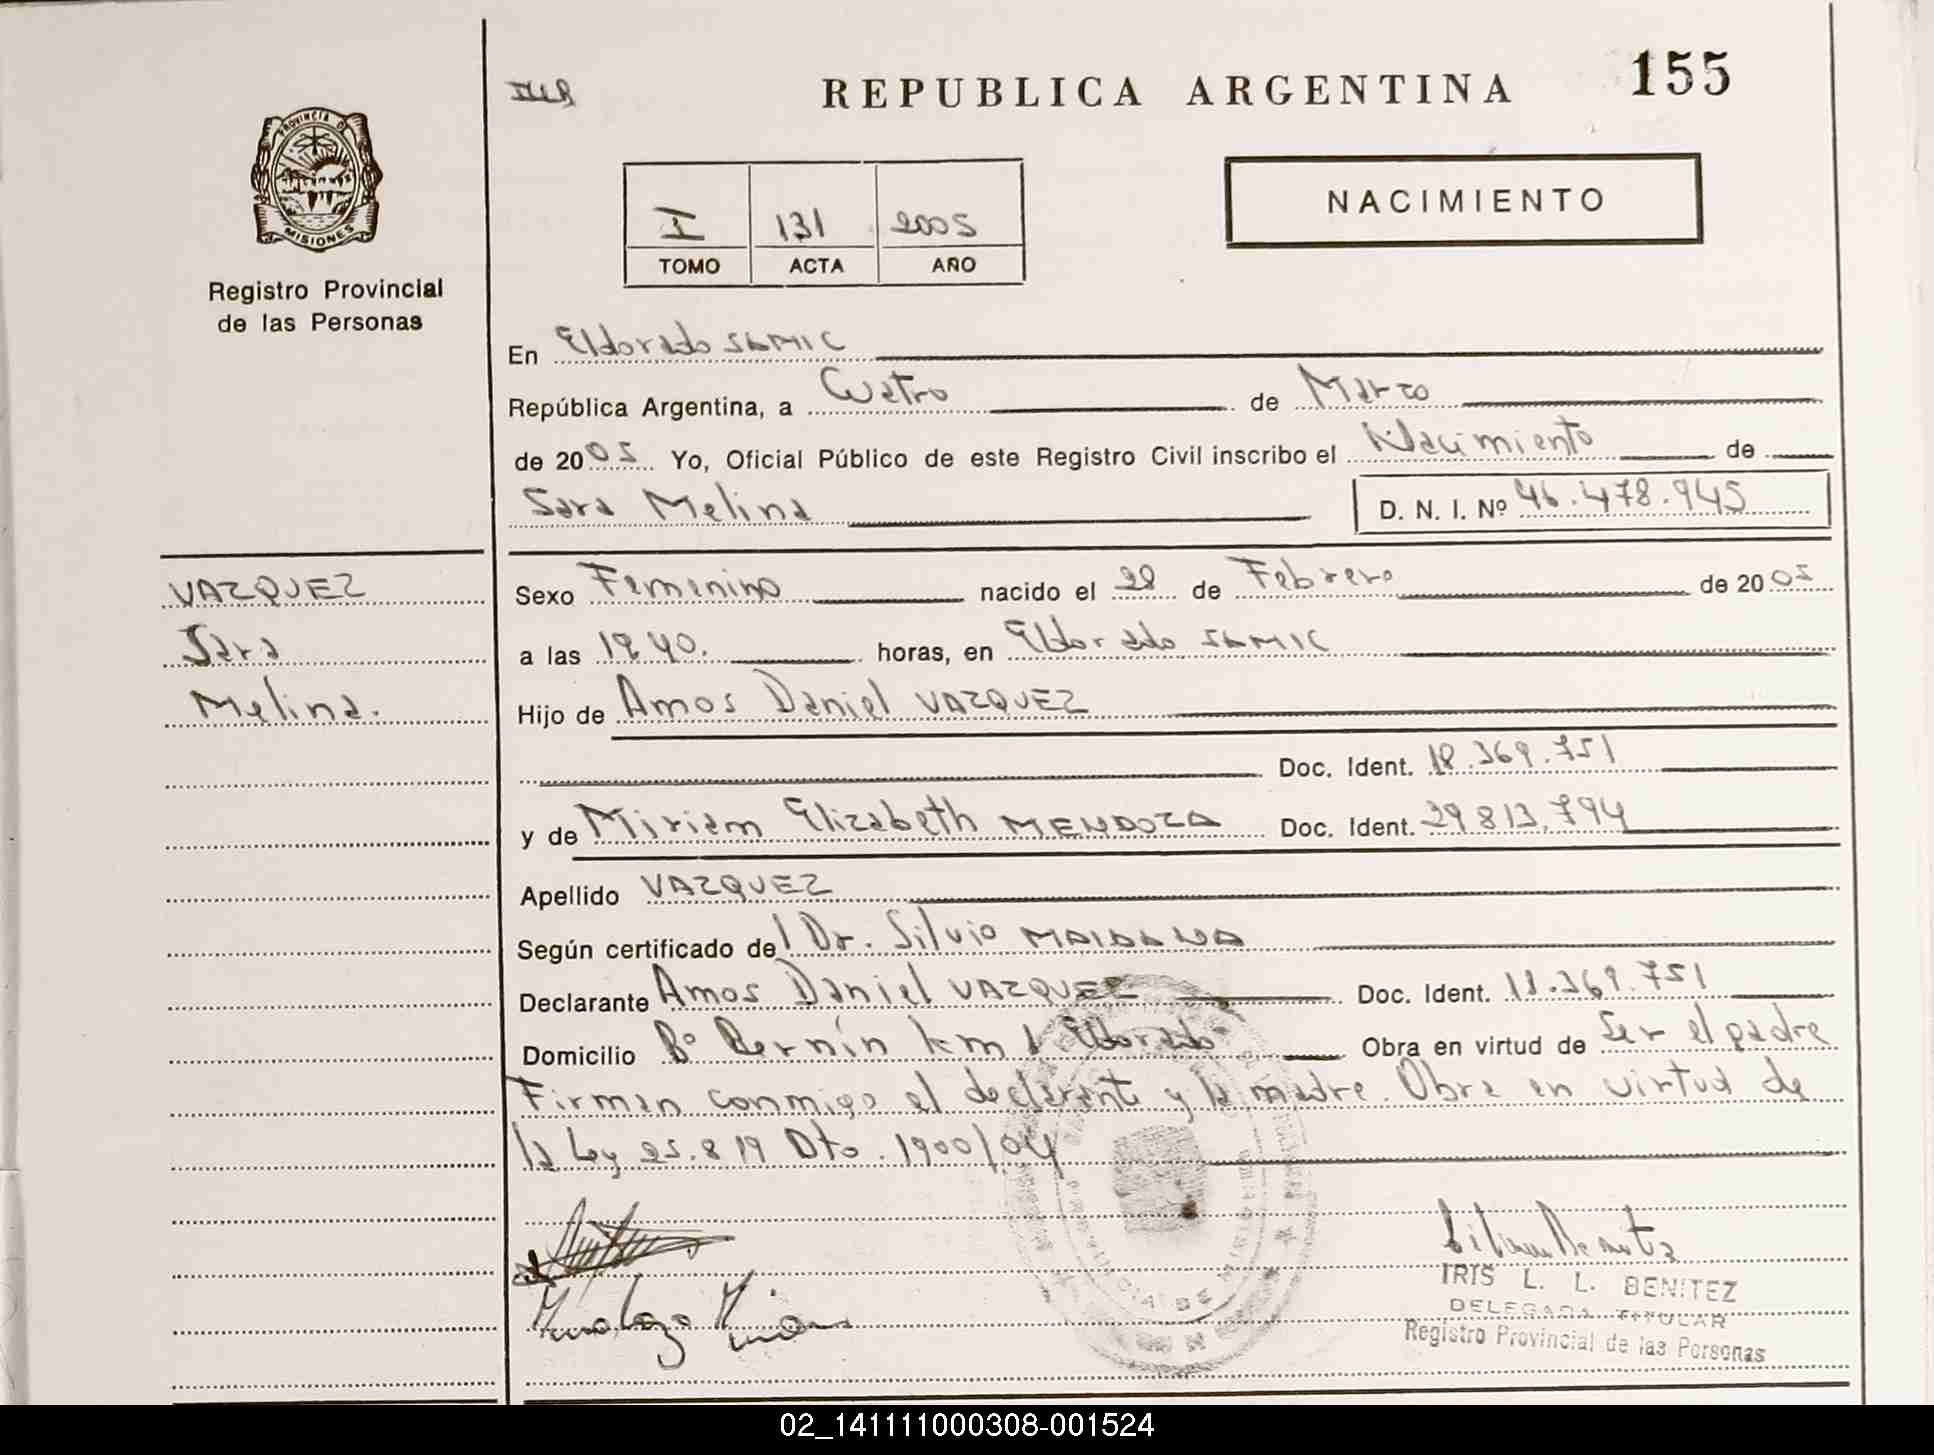 REPUBLICA ARGENTINA
155
PROVINCIA DE
MISIONES
Registro Provincial
de las Personas
I 131 2005
TOMO ACTA AÑO
NACIMIENTO
En Eldorado SAMIC
República Argentina, a Cuatro de Marzo
de 2005 Yo, Oficial Público de este Registro Civil inscribo el Nacimiento de
Sara Melina D. N. I. Nº 46.478.945
VAZQUEZ
Sara
Melina.
Sexo Femenino nacido el 28 de Febrero de 2005
a las 19,40. horas, en Eldorado SAMIC
Hijo de Amos Daniel VAZQUEZ
Doc. Ident. 18.369.751
y de Miriam Elizabeth MENDOZA Doc. Ident. 29.813.794
Apellido VAZQUEZ
Según certificado del Dr. Silvio MAIDANA
Declarante Amos Daniel VAZQUEZ Doc. Ident. 18.369.751
Domicilio Bº km 1 Eldorado Obra en virtud de Ser el padre
Firman conmigo el declarante y la madre. Obra en virtud de
la Ley 25.819 Dto. 1900/04
IRIS L. L. BENITEZ
DELEGADA TITULAR
Registro Provincial de las Personas
02_141111000308-001524